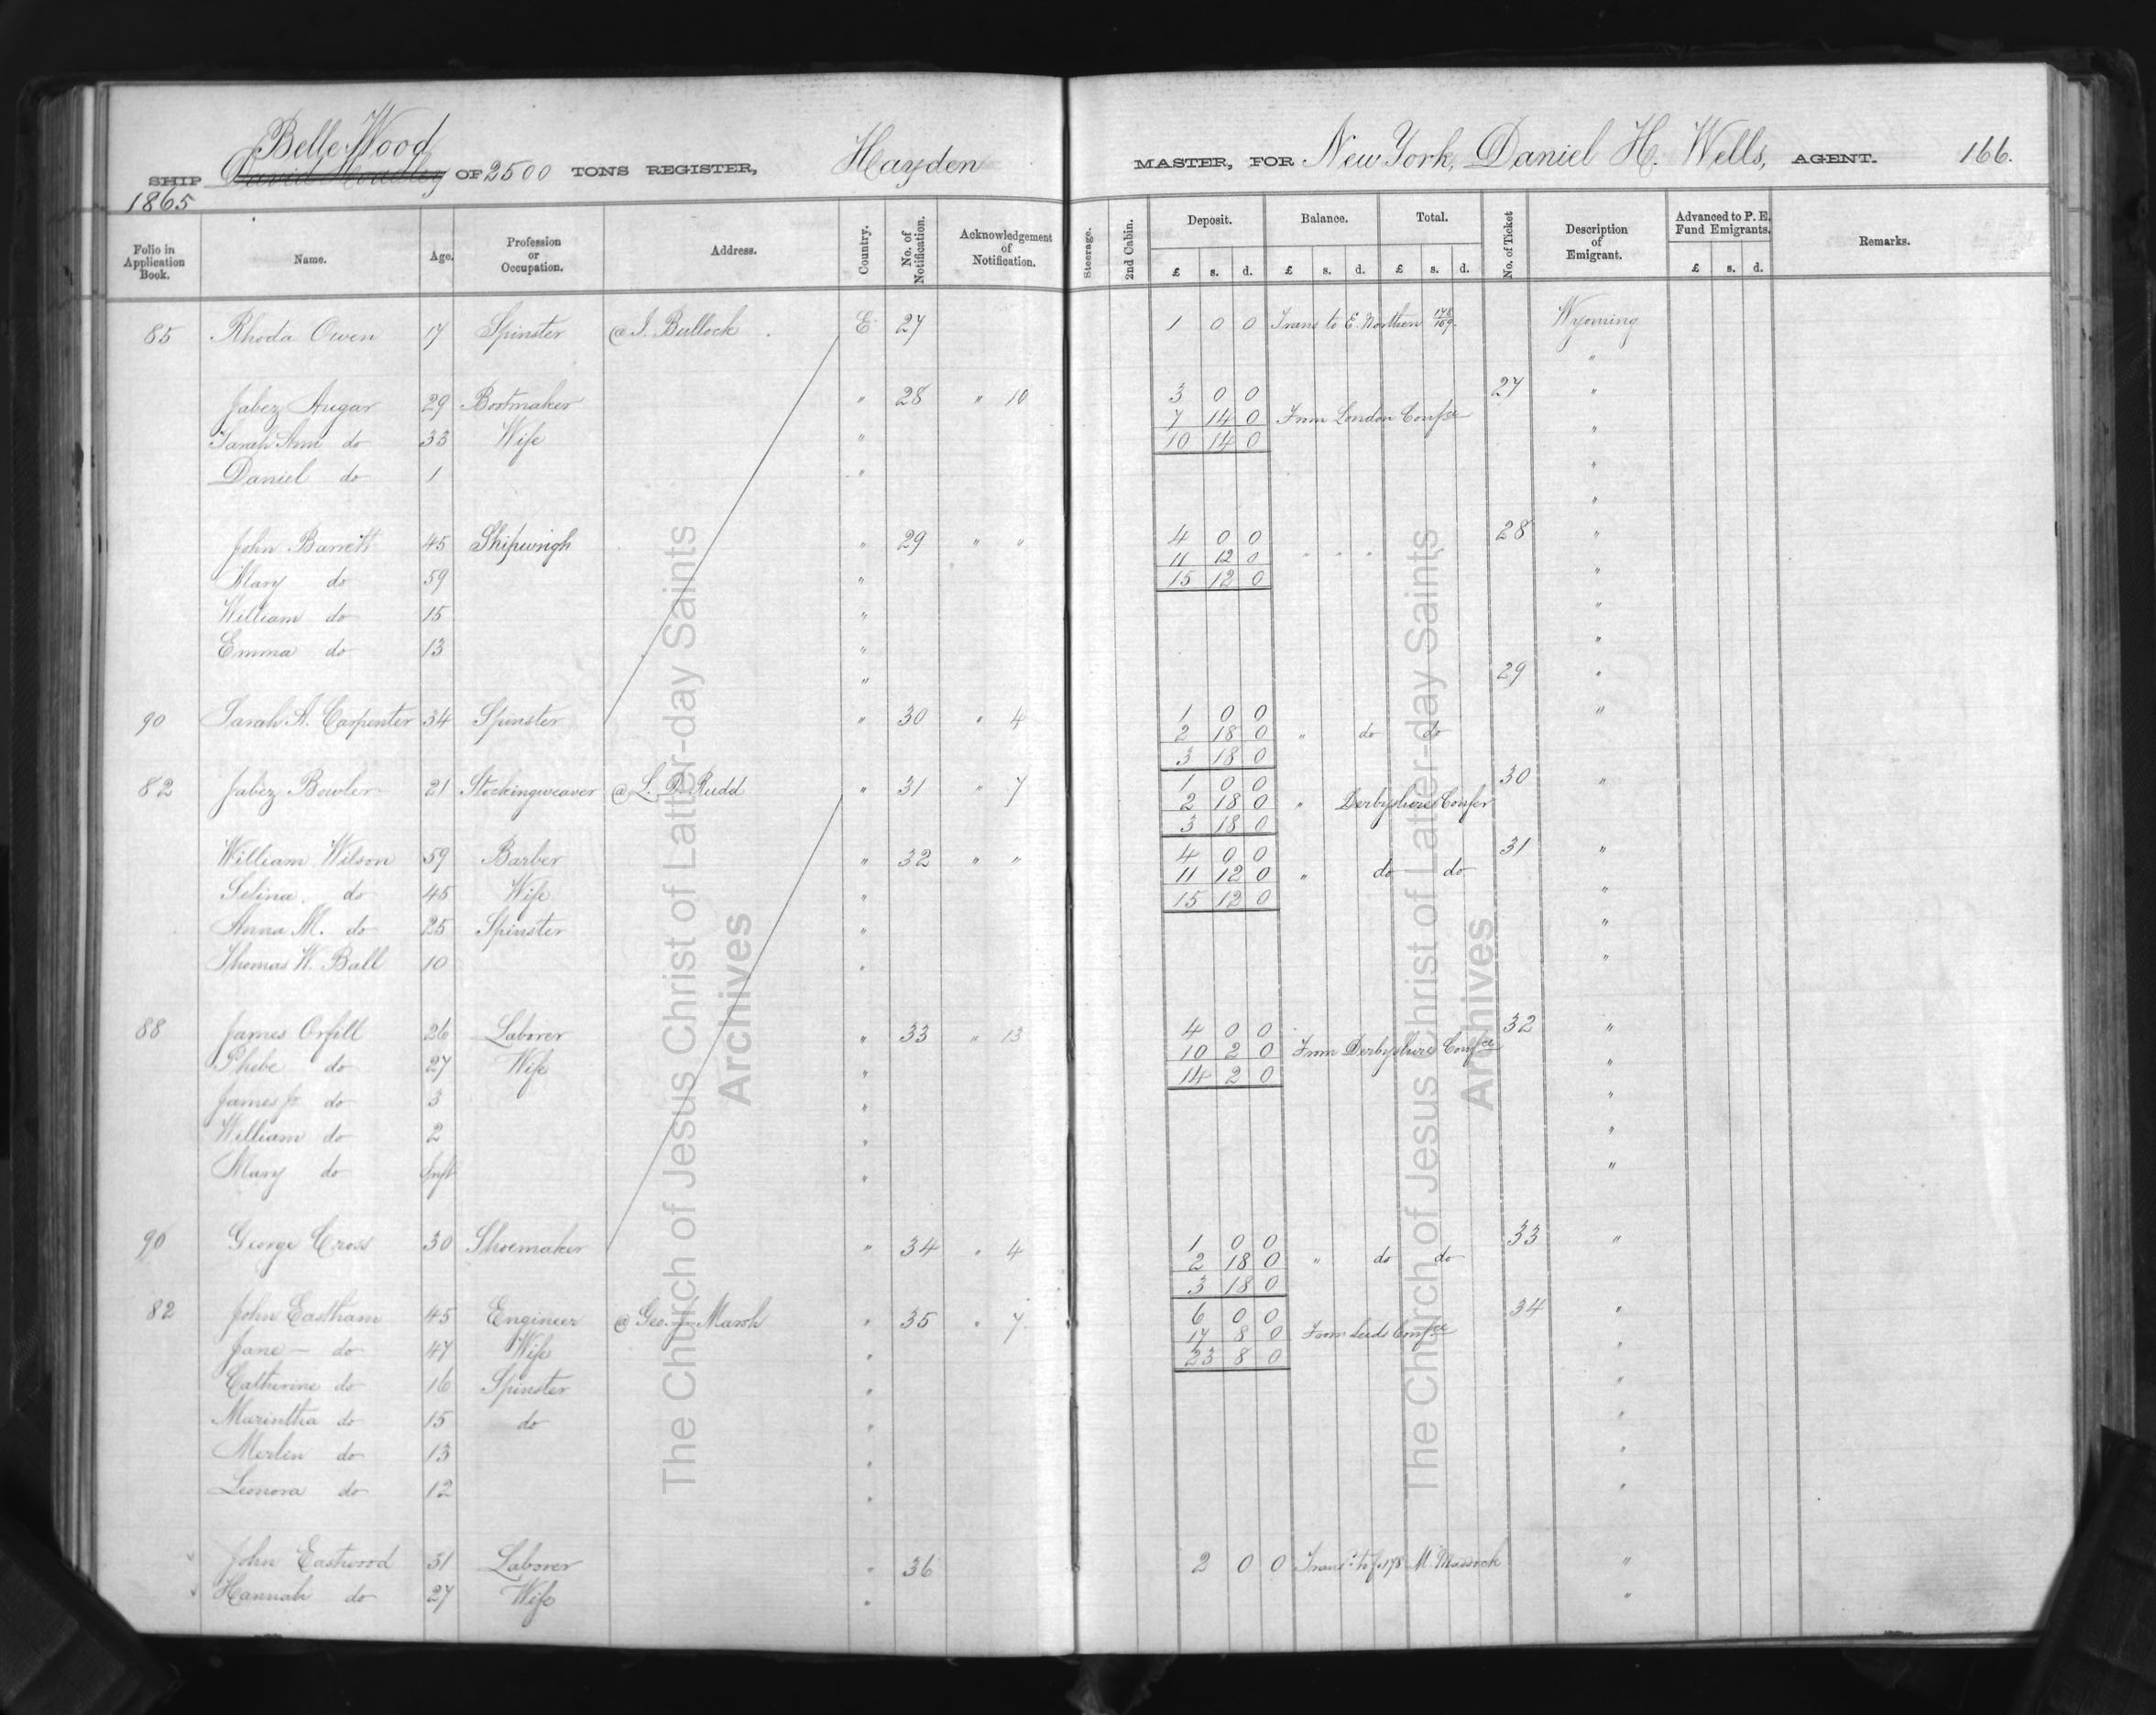 Belle Wood
SHIP David Hoadley OF 2500 TONS REGISTER, Hayden MASTER, FOR New York, Daniel H. Wells, AGENT. 166.
1865
Folio in Application Book. Name. Age. Profession or Occupation. Address. Country. No. of Notification. Acknowledgement of Notification. Steerage. 2nd Cabin. Deposit. Balance. Total. No. of Ticket Description of Emigrant. Advanced to P. E. Fund Emigrants. Remarks.
£ s. d. £ s. d. £ s. d. £ s. d.
85 Rhoda Owen 17 Spinster @ J. Bullock E 27 1 0 0 Trans to E. Northern 178/169 Wyoming
"
Jabez Augar 29 Bootmaker " 28 " 10 3 0 0 27 "
7 14 0 From London Confce
Sarah Ann do 33 Wife " 10 14 0 "
Daniel do 1 " "
"
John Barrett 45 Shipwrigh " 29 " " 4 0 0 28 "
11 12 0 " " "
Mary do 59 " 15 12 0 "
William do 15 " "
Emma do 13 " "
" 29 "
90 Sarah A. Carpenter 34 Spinster " 30 " 4 1 0 0 "
2 18 0 " do do
3 18 0
82 Jabez Bowler 21 Stockingweaver @ L. P. Rudd " 31 " 7 1 0 0 30 "
2 18 0 " Derbyshire Confer
3 18 0
William Wilson 59 Barber " 32 " " 4 0 0 31 "
11 12 0 " do do
Selina do 45 Wife " 15 12 0 "
Anna M. do 25 Spinster " "
Thomas W. Ball 10 " "
88 James Orfill 26 Laborer " 33 " 13 4 0 0 32 "
10 2 0 From Derbyshire Confce
Phebe do 27 Wife " 14 2 0 "
James Jr do 3 " "
William do 2 " "
Mary do Inft " "
90 George Cross 30 Shoemaker " 34 " 4 1 0 0 33 "
2 18 0 " do do
3 18 0
82 John Eastham 45 Engineer @ Geo. J. Marsh " 35 " 7 6 0 0 34 "
17 8 0 From Leeds Confce
Jane do 47 Wife " 23 8 0 "
Catherine do 16 Spinster " "
Marintha do 15 do " "
Merlin do 13 " "
Leonora do 12 " "
John Eastwood 31 Laborer " 36 2 0 0 Transd to f. 178 M. Massock "
Hannah do 27 Wife " "
The Church of Jesus Christ of Latter-day Saints
Archives
The Church of Jesus Christ of Latter-day Saints
Archives